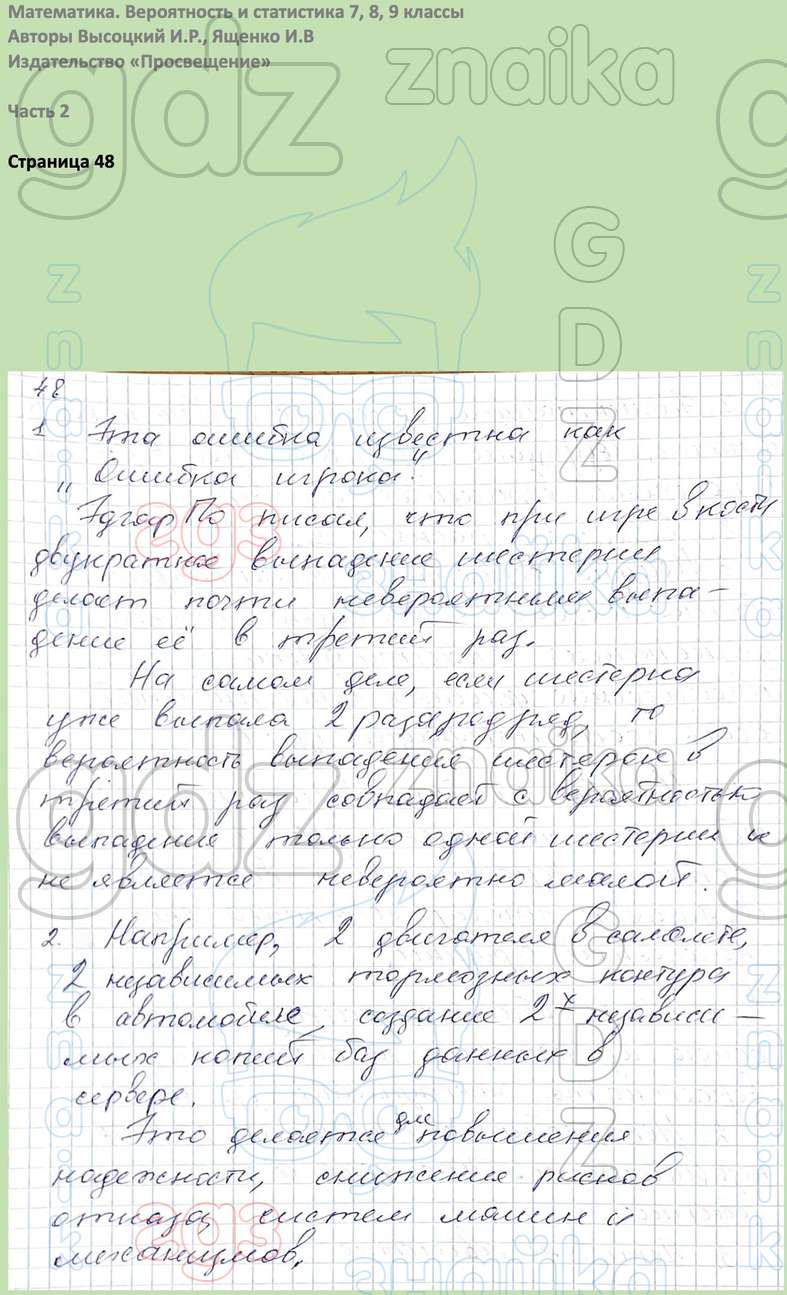 Математика. Вероятность и статистика 7, 8, 9 классы
Авторы Высоцкий И.Р., Ященко И.В
Издательство «Просвещение»
Часть 2
Страница 48
gdz znaika
GDZ
48
1 Эта ошибка известна как
„Ошибка игрока".
Эдгар По писал, что при игре в кости
двукратное выпадение шестерки
делает почти невероятным выпа-
дение её в третий раз.
На самом деле, если шестерка
уже выпала 2 раза подряд, то
вероятность выпадения шестерок в
третий раз совпадает с вероятностью
выпадения только одной шестерки и
не является невероятно малой.
2. Например, 2 двигателя в самолете,
2 независимых тормозных контура
в автомобиле, создание 2х независи-
мых копий баз данных в
сервере.
Это делается для повышения
надежности, снижения рисков
отказа систем машин и
механизмов.